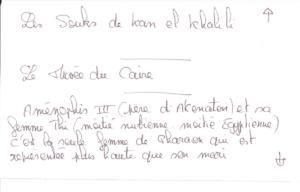 Les Souks de kan el khalili
Le Musée du Caire
Aménophis III (père d'Akenaton) et sa
femme Thi (moitié nubienne moitié Egyptienne)
c'est la seule femme de pharaon qui est
représentée plus haute que son mari